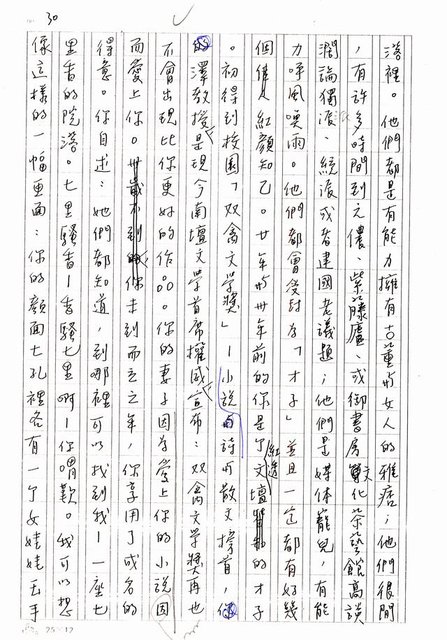 30
落裡。他們都是有能力擁有古董的女人的雅痞;他們很閒
,有許多時間到元儂、紫藤廬、或御書房文化茶藝館高談
闊論獨派、統派或者建國老議題;他們是媒体寵兒,有能
力呼風喚雨。他們都會發封為「才子」並且一定都有好幾
個紅顏知己。廿年前卅年前的你是紅透了文壇的才子
。初得到校園「双禽文學獎」—小說的詩的散文榜首,
澤教授是現今南壇文學首席權威宣布:双禽文學獎再也
不會出現比你更好的作品。你的妻子因為愛上你的小說因
而愛上你。你未到而立之年,你享用了成名的
得意。你自述:她們都知道,到哪裡可以找到我—一座七
里香的院落。七里騷香—香騷七里啊—你喟歎。我可以想
像這樣的一幅畫面:你的顏面七孔裡各有一个女娃娃玉手